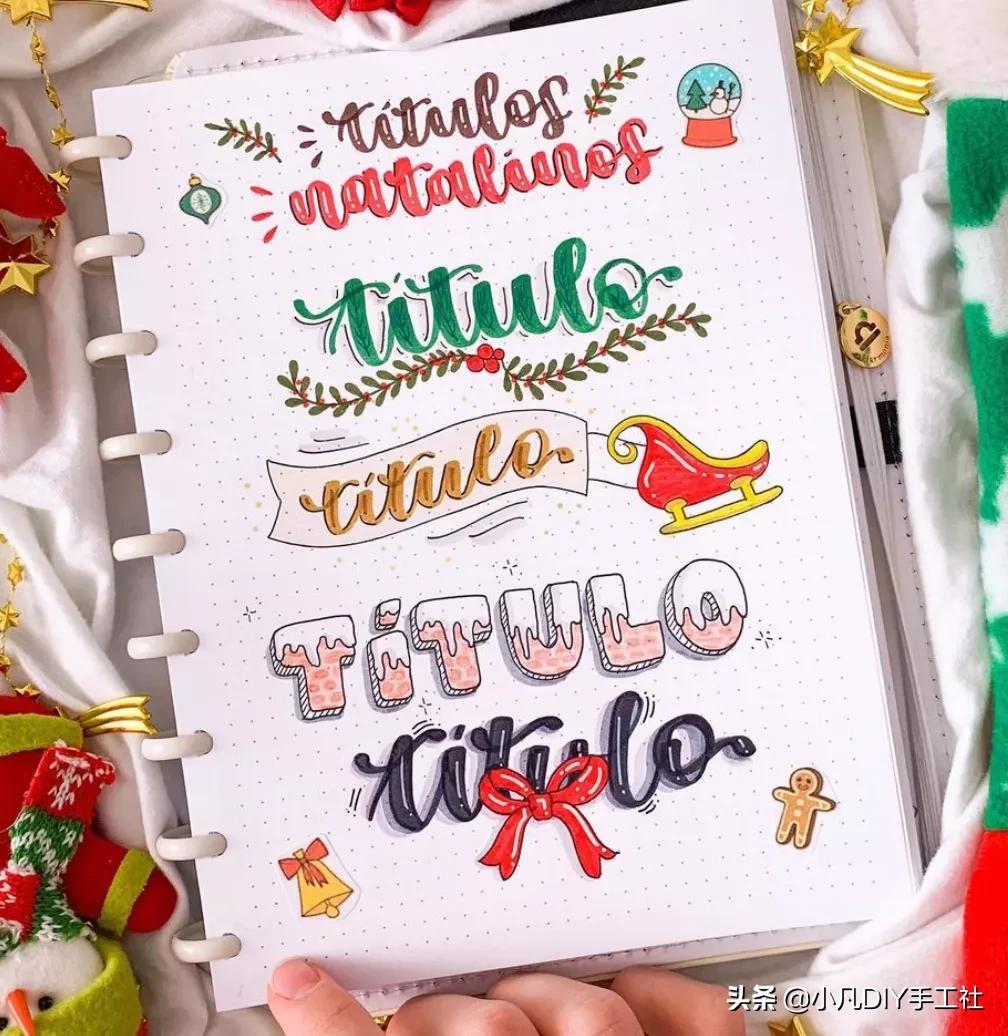 títulos
natalinos
título
título
TÍTULO
título
头条 @小凡DIY手工社